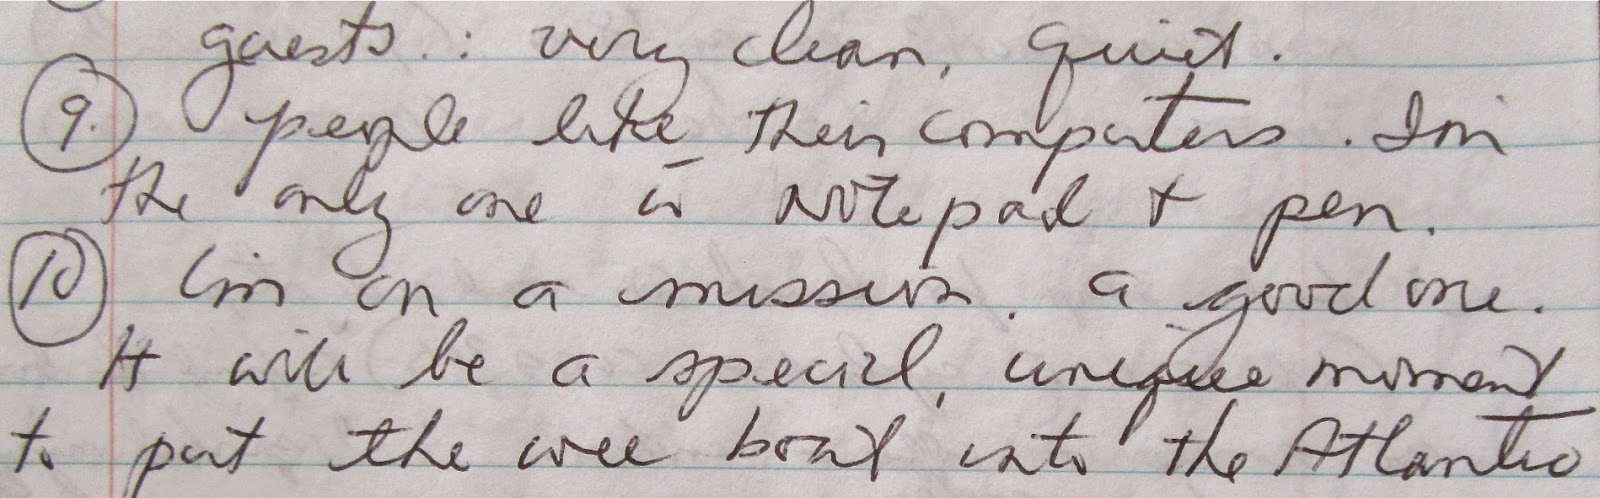 guests.: very clean, quiet.
9. people like their computers. I'm
the only one w̄ notepad + pen.
10 I'm on a mission. a good one.
It will be a special, unique moment
to put the wee boat into the Atlantic